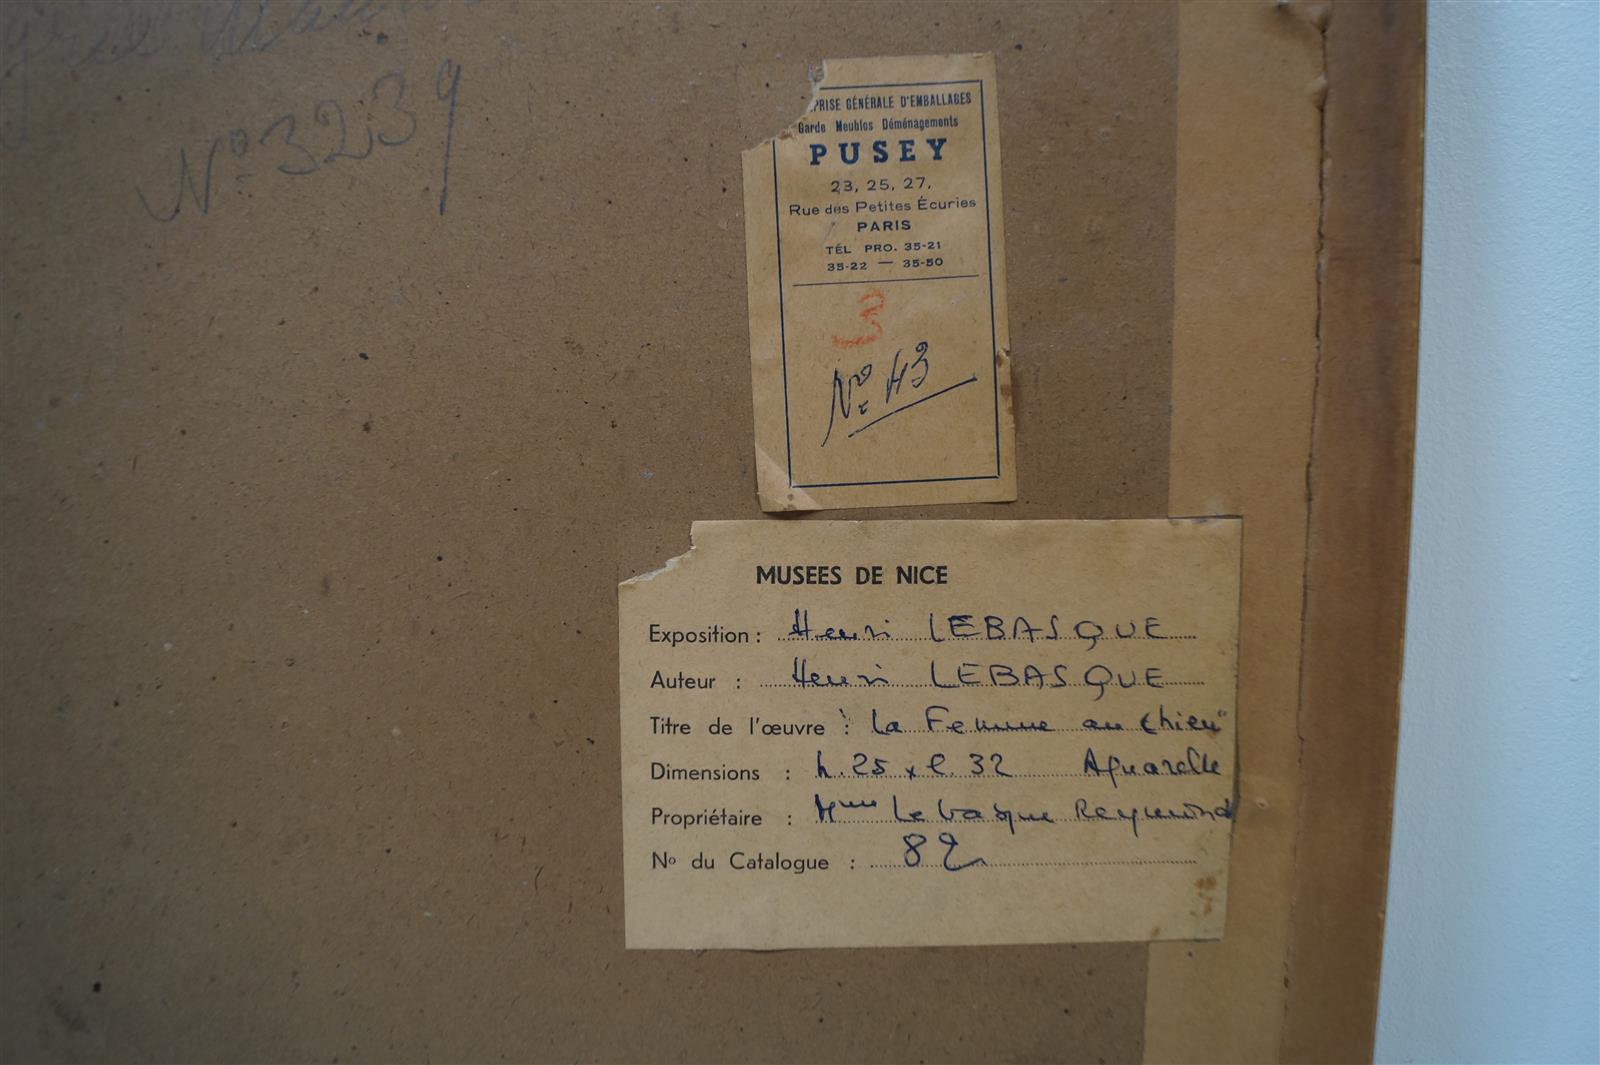 No 3239
PRISE GÉNÉRALE D'EMBALLAGES
Garde Meubles Déménagements
PUSEY
23, 25, 27,
Rue des Petites Écuries
PARIS
TÉL PRO. 35-21
35-22 — 35-50
3
No 43
MUSEES DE NICE
Exposition : Henri LEBASQUE
Auteur : Henri LEBASQUE
Titre de l'œuvre : "La Femme au chien"
Dimensions : h. 25 x l 32 Aquarelle
Propriétaire : Mme Lebasque Reymond
No du Catalogue : 82